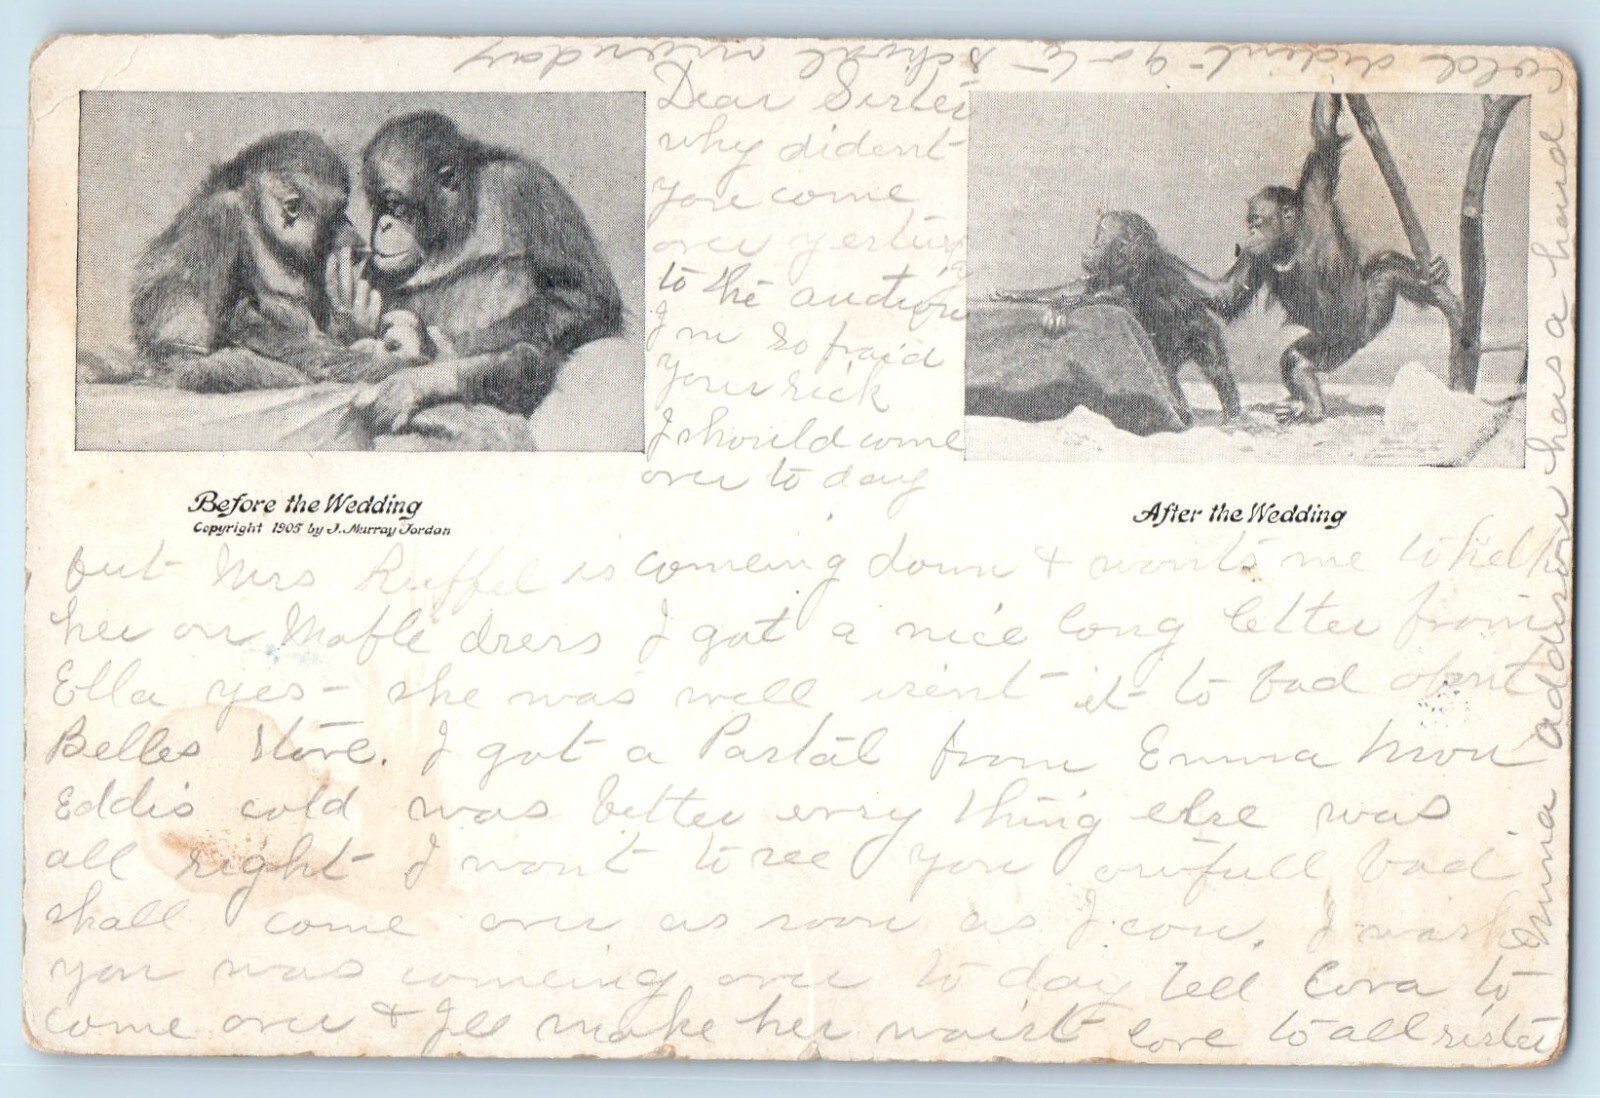 Dear Sister
why dident
you come
over yesturday
to the auction
I'm so fraid
your sick
I should come
over to day
Before the Wedding
Copyright 1905 by J. Murray Jordan
After the Wedding
but Mrs Ruffel is comeing down & wonts me to help
her on Mable dress I got a nice long letter from
Ella yes - she was well isent it to bad about
Belles stove. I got a Postal from Emma
Eddis cold was better evry thing else was
all right I wont to see you awfull bad
shall come over as soon as I con. I wash
you was comeing over to day tell Cora to
come over & I'll make her waist love to all sister
Emma adderson has a hard
cold dident go to school